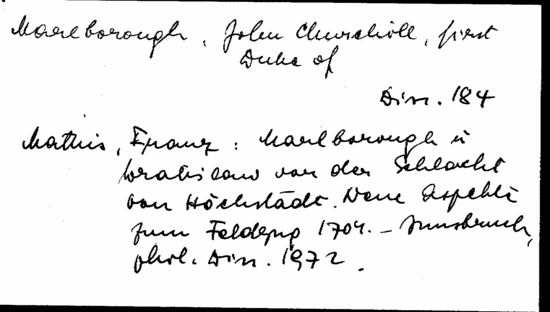 Marlborough, John Churchill, first
Duke of
Diss. 184
Mathis, Franz: Marlborough u
Wratislaw vor der Schlacht
von Höchstädt. Neue Aspekte
zum Feldzug 1704. – Innsbruck,
phil. Diss. 1972.